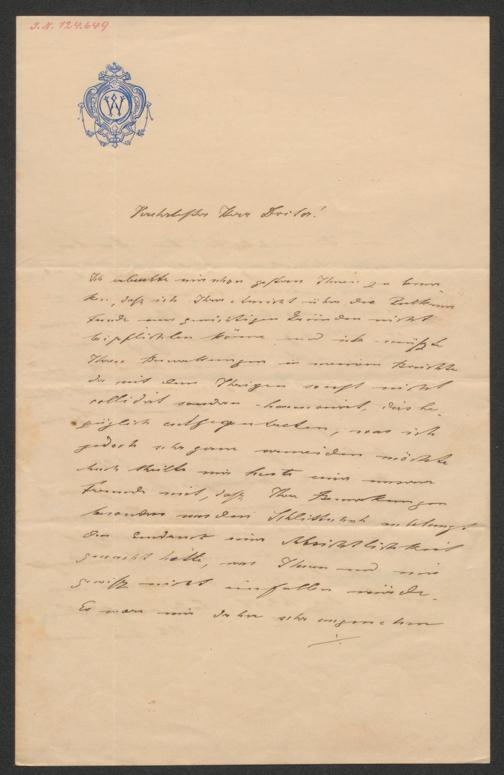 J. N. 124.649
W
Verehrtester Herr Doctor!
Ich erlaubte mir schon gestern Ihnen zu bemer
ken, daß ich Ihre Ansicht über die
Funde aus gewichtigen Gründen nicht
beipflichten könne und ich müßte
Ihren Bemerkungen in meinem Berichte
der mit dem Ihrigen sonst nicht
collidirt sondern harmonirt, dies be-
züglich entgegentreten, was ich
jedoch sehr gern vermeiden möchte
Auch theilte mir heute einer unserer
Freunde mit, daß Ihre Bemerkungen
besonders was den Schlittschuh anbelangt
die Tendenz einer Absichtlichkeit
gemacht hätte, was Ihnen und mir
gewiß nicht einfallen würde.
Es wäre mir daher sehr angenehm